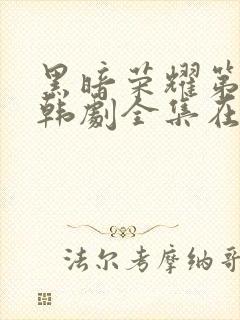 黑暗荣耀第
韩剧全集在
法尔考摩纳哥